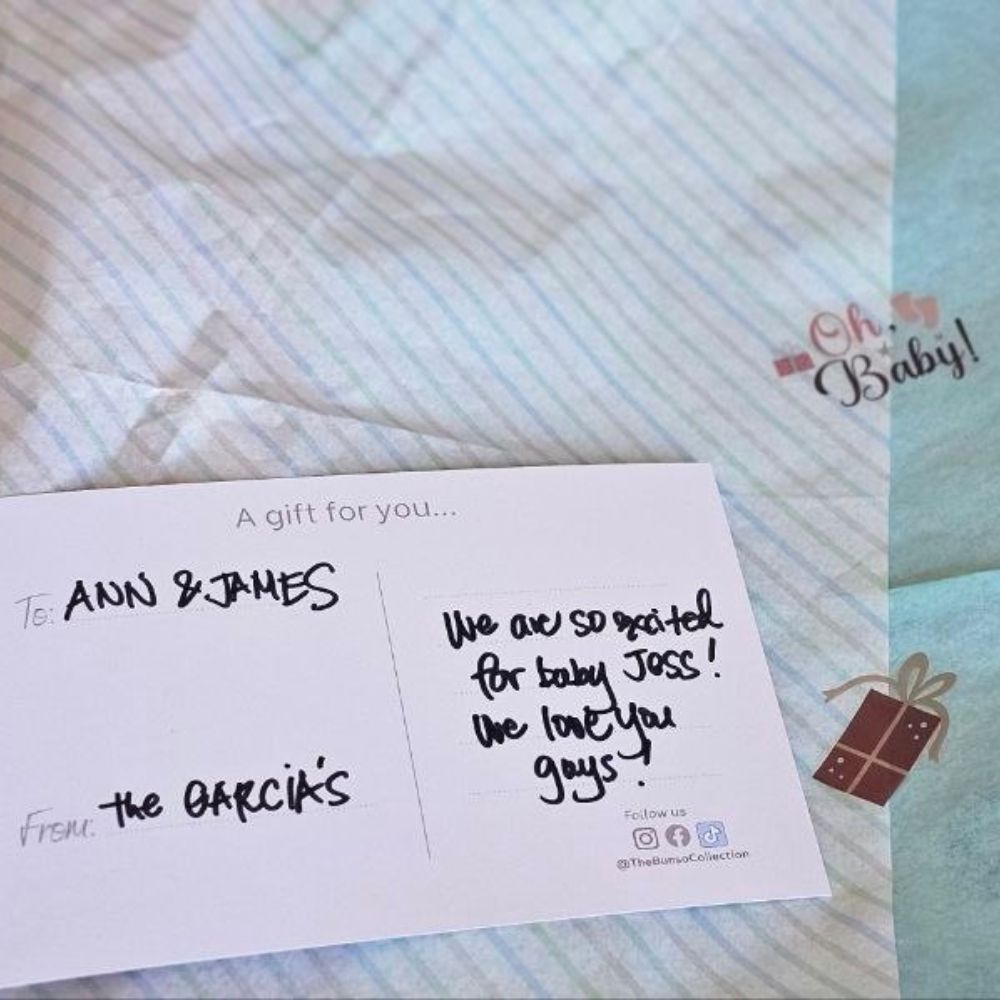 Oh,
Baby!
A gift for you...
To: ANN & JAMES
We are so excited
for baby Jess!
We love you
guys!
From: the GARCIA'S
Follow us
@TheBunsoCollection